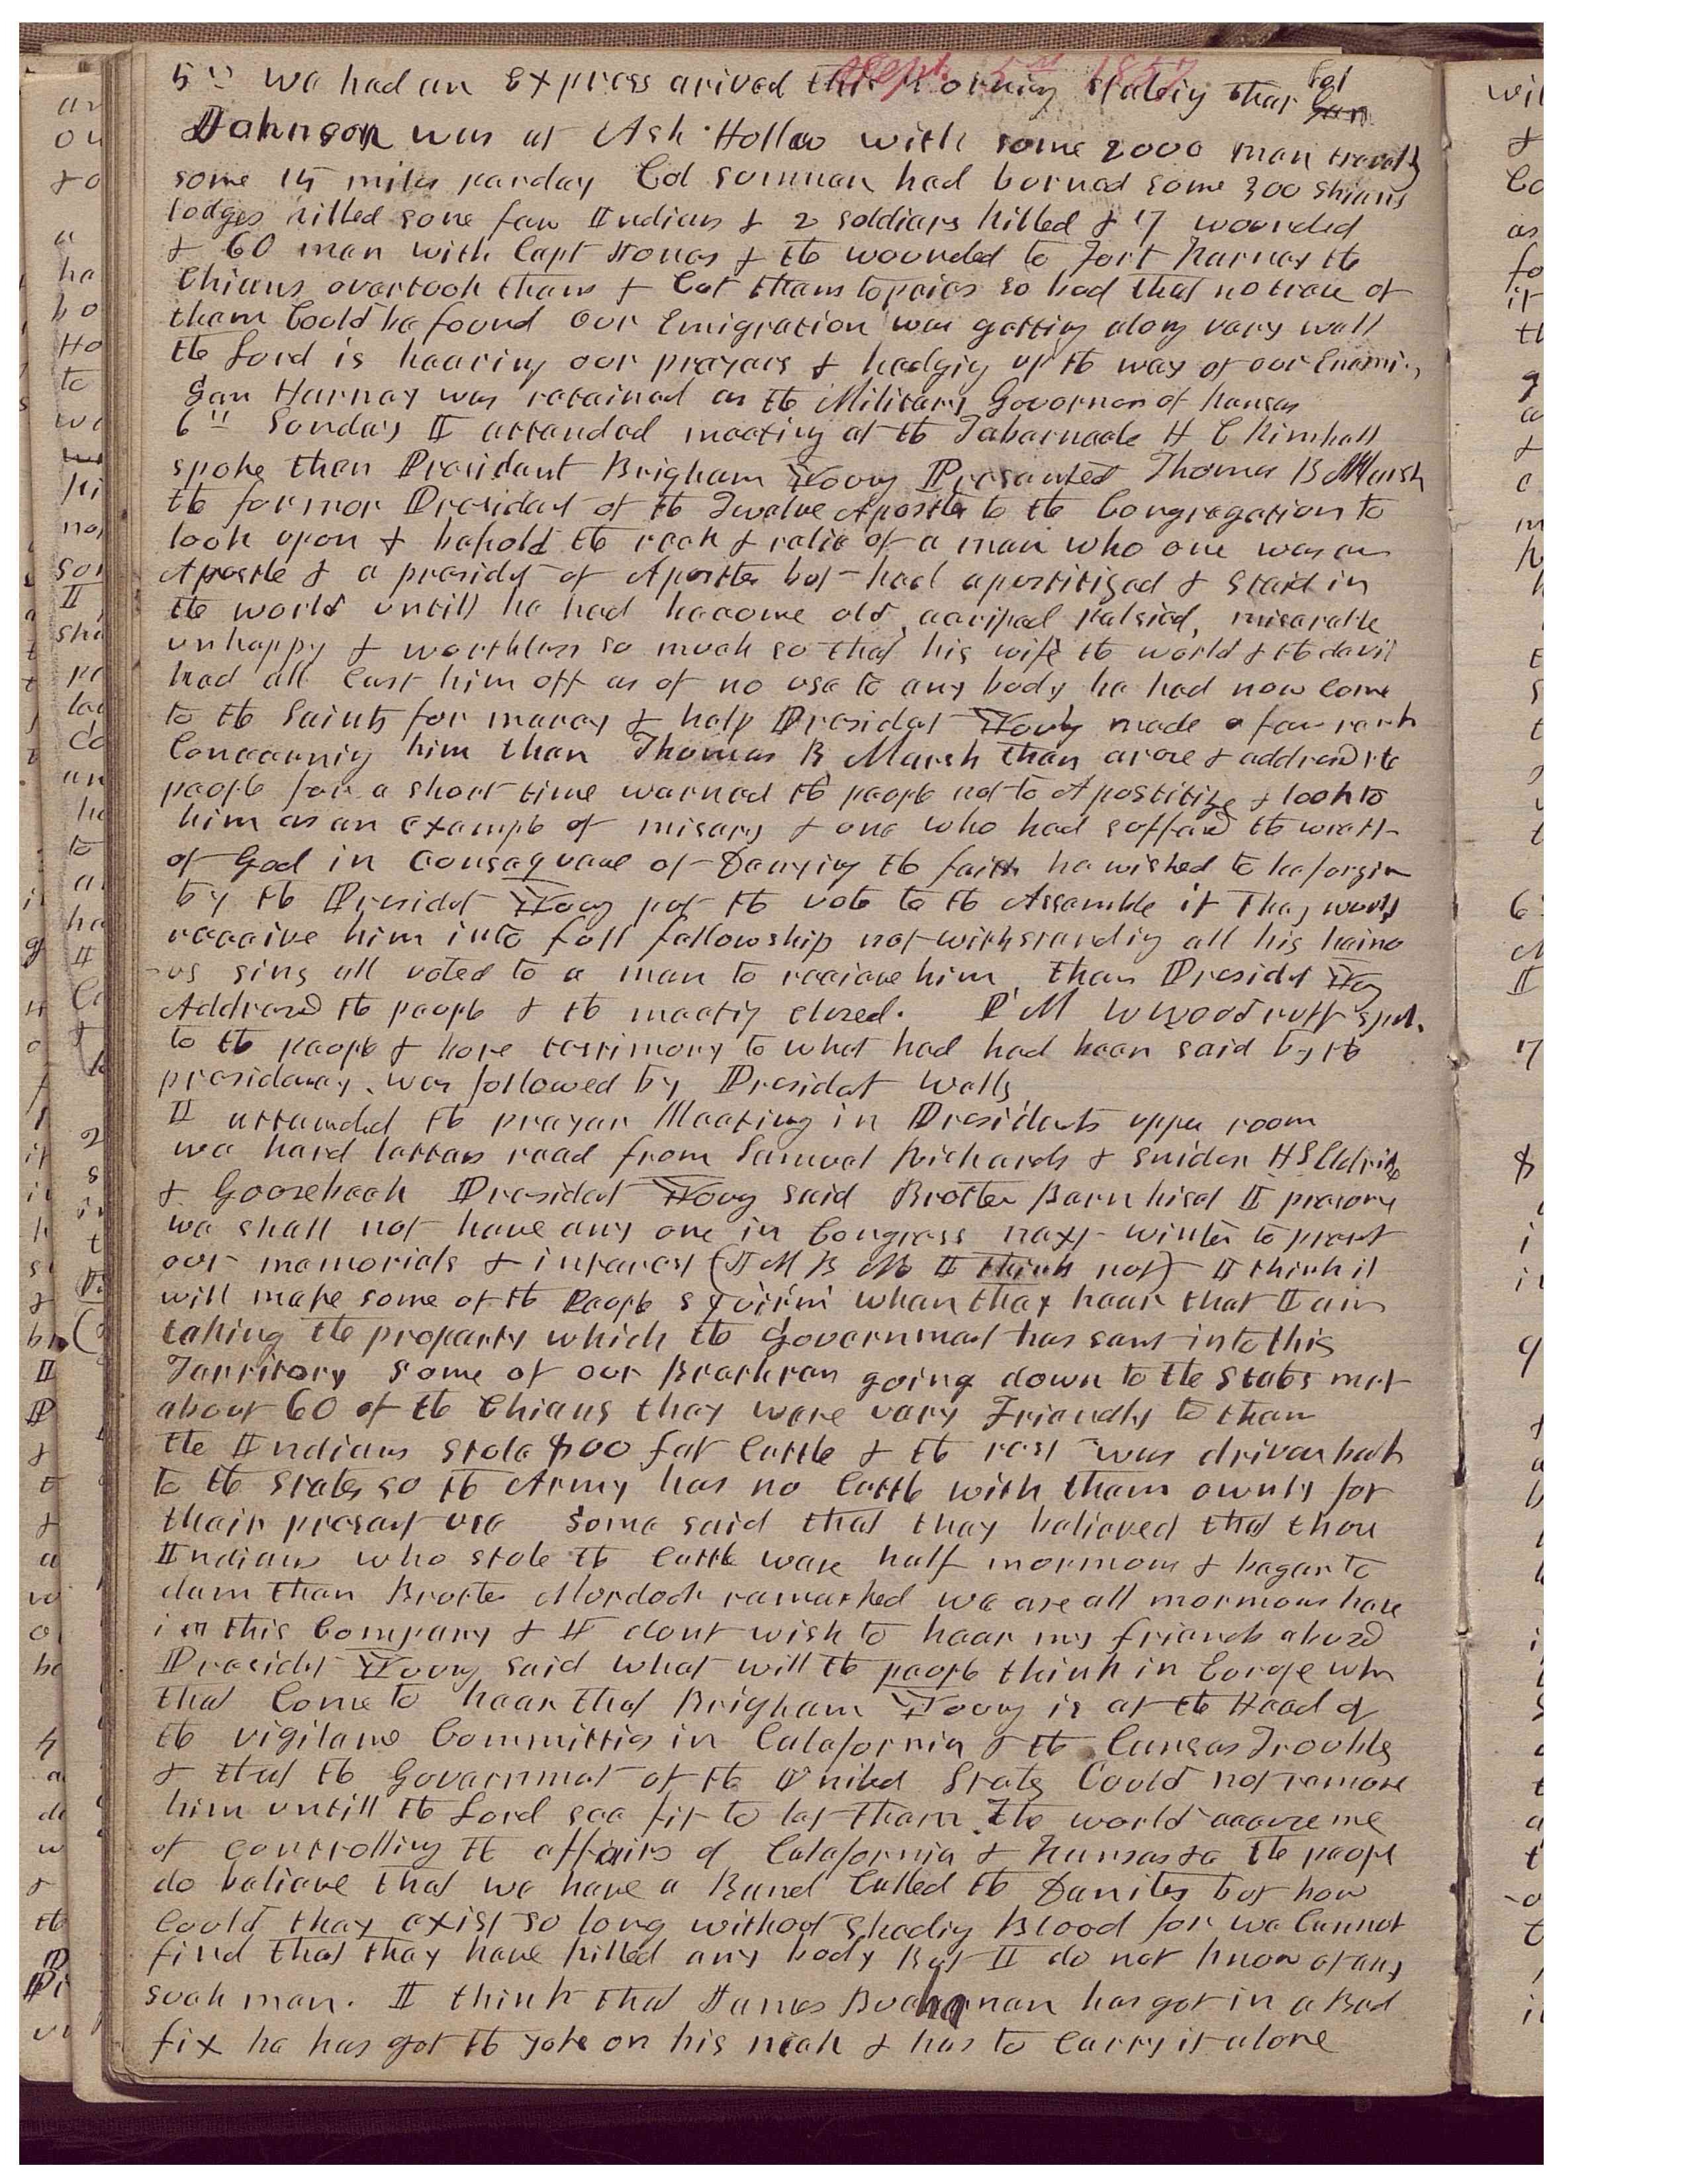 Sept. 5th 1857
5" we had an Express arived this Morning stateing that Col
Gen
Johnson was at Ash Hollow with some 2000 men travelly
some 15 miles perday Col Sumnan had borned some 300 Shians
lodges killed some few Indians & 2 soldiers killed & 17 wounded
& 60 men with Capt Jones & the wounded to Fort Karney the
Chians overtook them & Cut them topeices so bad that no trace of
them Could be found our Emigration was getting along vary well
the Lord is heering our prayers & hedgig up the way of our Enemi.,
Gen Harney was retained as the Military Governor of Kansas
6" Sonday I attended meeting at the Tabarnacle H C Kimball
spoke then President Brigham Young Presented Thomas B Marsh
the former President of the Twelve Apostles to the Congregation to
look upon & behold the reck & relic of a man who once was an
Apostle & a presidet of Apostles but had apostitized & staid in
the world untill he had become old, palsied, miserable
unhappy & worthless so much so that his wife the world & the devil
had all Cast him off as of no use to any body he had now Come
to the Saints for mercy & help Presidet Young made a few remk
Conccerning him then Thomas B Marsh then arose & addresd the
people for a short time warned the people not to Apostitize & look to
him as an example of misery & one who had sufferd the wrath
of God in Consequence of Denying the faith he wished to be forgiv
by the Presidet Young put the vote to the Assemble if They would
receive him into full fellowship not-withstanding all his heino
-us sins all voted to a man to receive him, then Presidet Young
Addresed the people & the meetig closed. P M W Woodruff spok.
to the people & bore testimony to what had had been said by the
presidency. was followed by Presidet Wells
I attended the prayer Meeting in Presidents upper room
we hard letters read from Samuel Richards & Snider H S Eldridge
& Groesbeck Presidet Young said Brother Barnhisel I presume
we shall not have any one in Congress next winter to presnt
our memorials & interest (J M B I think not) I think it
will make some of the People squirm when they hear that I am
taking the property which the Government has sent into this
Territory some of our Brethren going down to the States met
about 60 of the Chians they were vary Friendly to them
the Indians stole 800 fat Cattle & the rest was driven back
to the States so the Army has no Cattle with them ownly for
their present use some said that they believed that those
Indians who stole the Cattle ware half mormons & began to
dam them Brother Mordock remarked we are all mormons here
in this Company & I dont wish to hear my friends abused
Presidet Young said what will the people think in Europe whn
that Come to hear that Brigham Young is at the Head of
the vigilance Committies in Calafornia & the Cansas Troubles
& that the Governmet of the United States Could not remove
him untill the Lord see fit to let them. The world accuse me
of controlling the affairs of Calafornia & Kansas &c the people
do believe that we have a Band Called the Danites but how
Could they exist so long without sheding Blood for we Cannot
find that they have killed any body But I do not know of any
such men. I think that James Buchanan has got in a Bad
fix he has got the yoke on his neck & has to Carry it alone